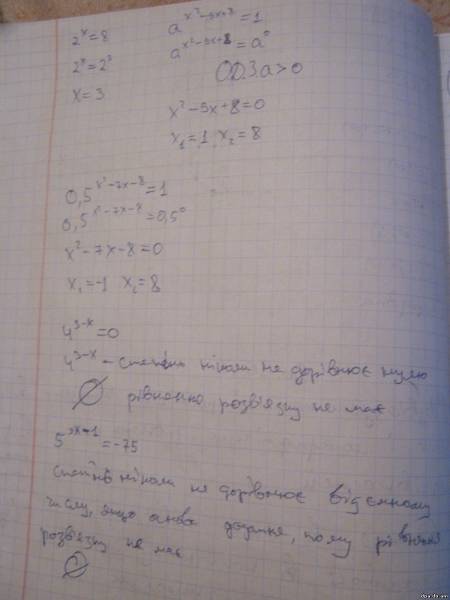 2^x=8
2^x=2^3
x=3
a^x²-9x+8=1
a^x²-9x+8=a^0
О.Д.З. a>0
x²-9x+8=0
x₁=1 x₂=8
0,5^x²-7x-8=1
0,5^x²-7x-8=0,5^0
x²-7x-8=0
x₁=-1 x₂=8
4^3-x=0
4^3-x - степень ніколи не дорівнює нулю
∅ рівняння розв'язку не має
5^3x-1=-75
степінь ніколи не дорівнює від'ємному
числу, якщо основа додатня, тому рівняння
розв'язку не має
∅
dpa-zno.com